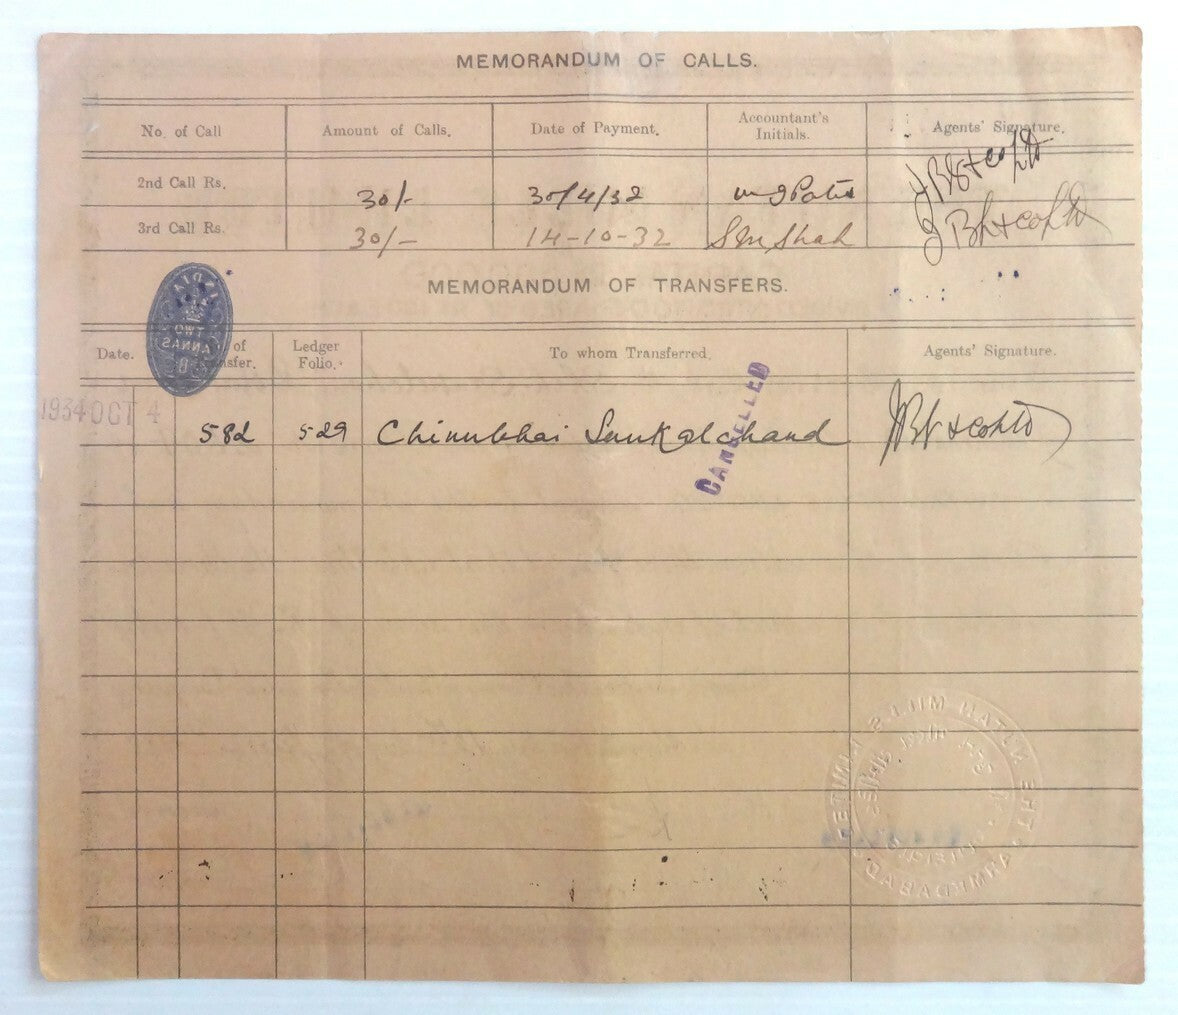 MEMORANDUM OF CALLS.
No. of Call Amount of Calls. Date of Payment. Accountant's Initials. Agents' Signature.
2nd Call Rs. 30/- 30/4/32
3rd Call Rs. 30/- 14-10-32 Shah
INDIA
TWO
ANNAS
MEMORANDUM OF TRANSFERS.
Date. of Transfer. Ledger Folio. To whom Transferred. Agents' Signature.
1934 OCT 4 582 529 Chinubhai Sankalchand
CANCELLED
THE NUTAN MILLS LIMITED
AHMEDABAD